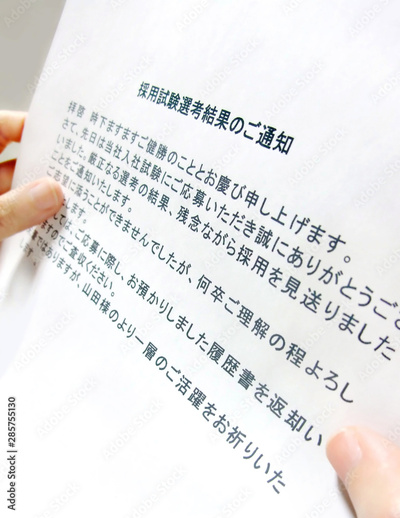 採用試験選考結果のご通知
拝啓 時下ますますご健勝のこととお慶び申し上げます。
さて、先日は当社入社試験にご応募いただき誠にありがとうござ
いました。厳正なる選考の結果、残念ながら採用を見送りました
ことをご通知いたします。
ご希望に添うことができませんでしたが、何卒ご理解の程よろし
ます。
ご応募に際し、お預かりしました履歴書を返却い
ますのでご査収ください。
ではありますが、山田様のより一層のご活躍をお祈りいた
す。
Adobe Stock | #285755130